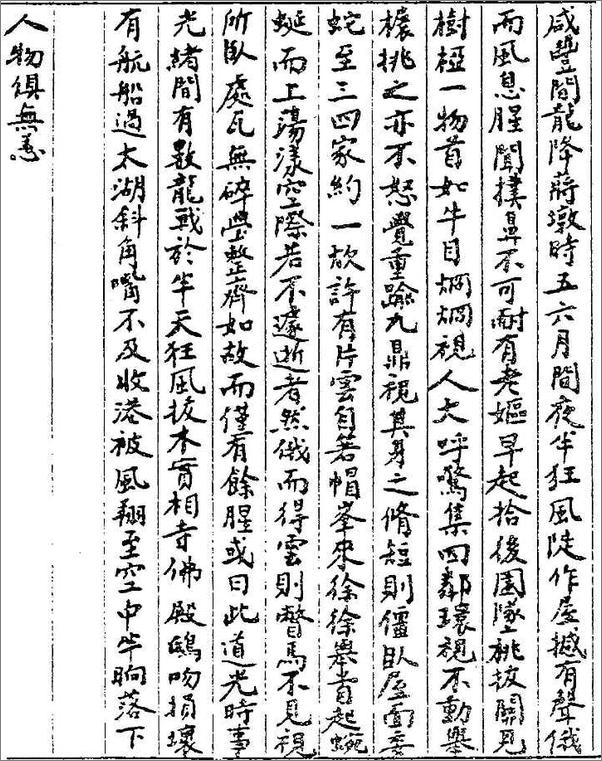 咸豐間龍降蔣墩時五六月間夜半狂風陡作屋撼有聲俄
而風息腥聞撲鼻不可耐有老嫗早起拾後園墜桃拔關見
樹極一物首如牛目烱烱視人大呼驚集四鄰環視不動舉
欀挑之亦不怒覺重踰九鼎視其身之脩短則僵臥屋面委
蛇至三四家約一畝許有片雲自箬帽峯來徐徐舉首起蜿
蜒而上蕩漾空際若不遽逝者然俄而得雲則瞥焉不見視
所臥處瓦無碎壘整齊如故而僅有餘腥或曰此道光時事
光緒間有數龍戰於半天狂風拔木實相寺佛殿鴟吻損壞
有航船過太湖斜角嘴不及收港被風翔至空中半晌落下
人物俱無恙